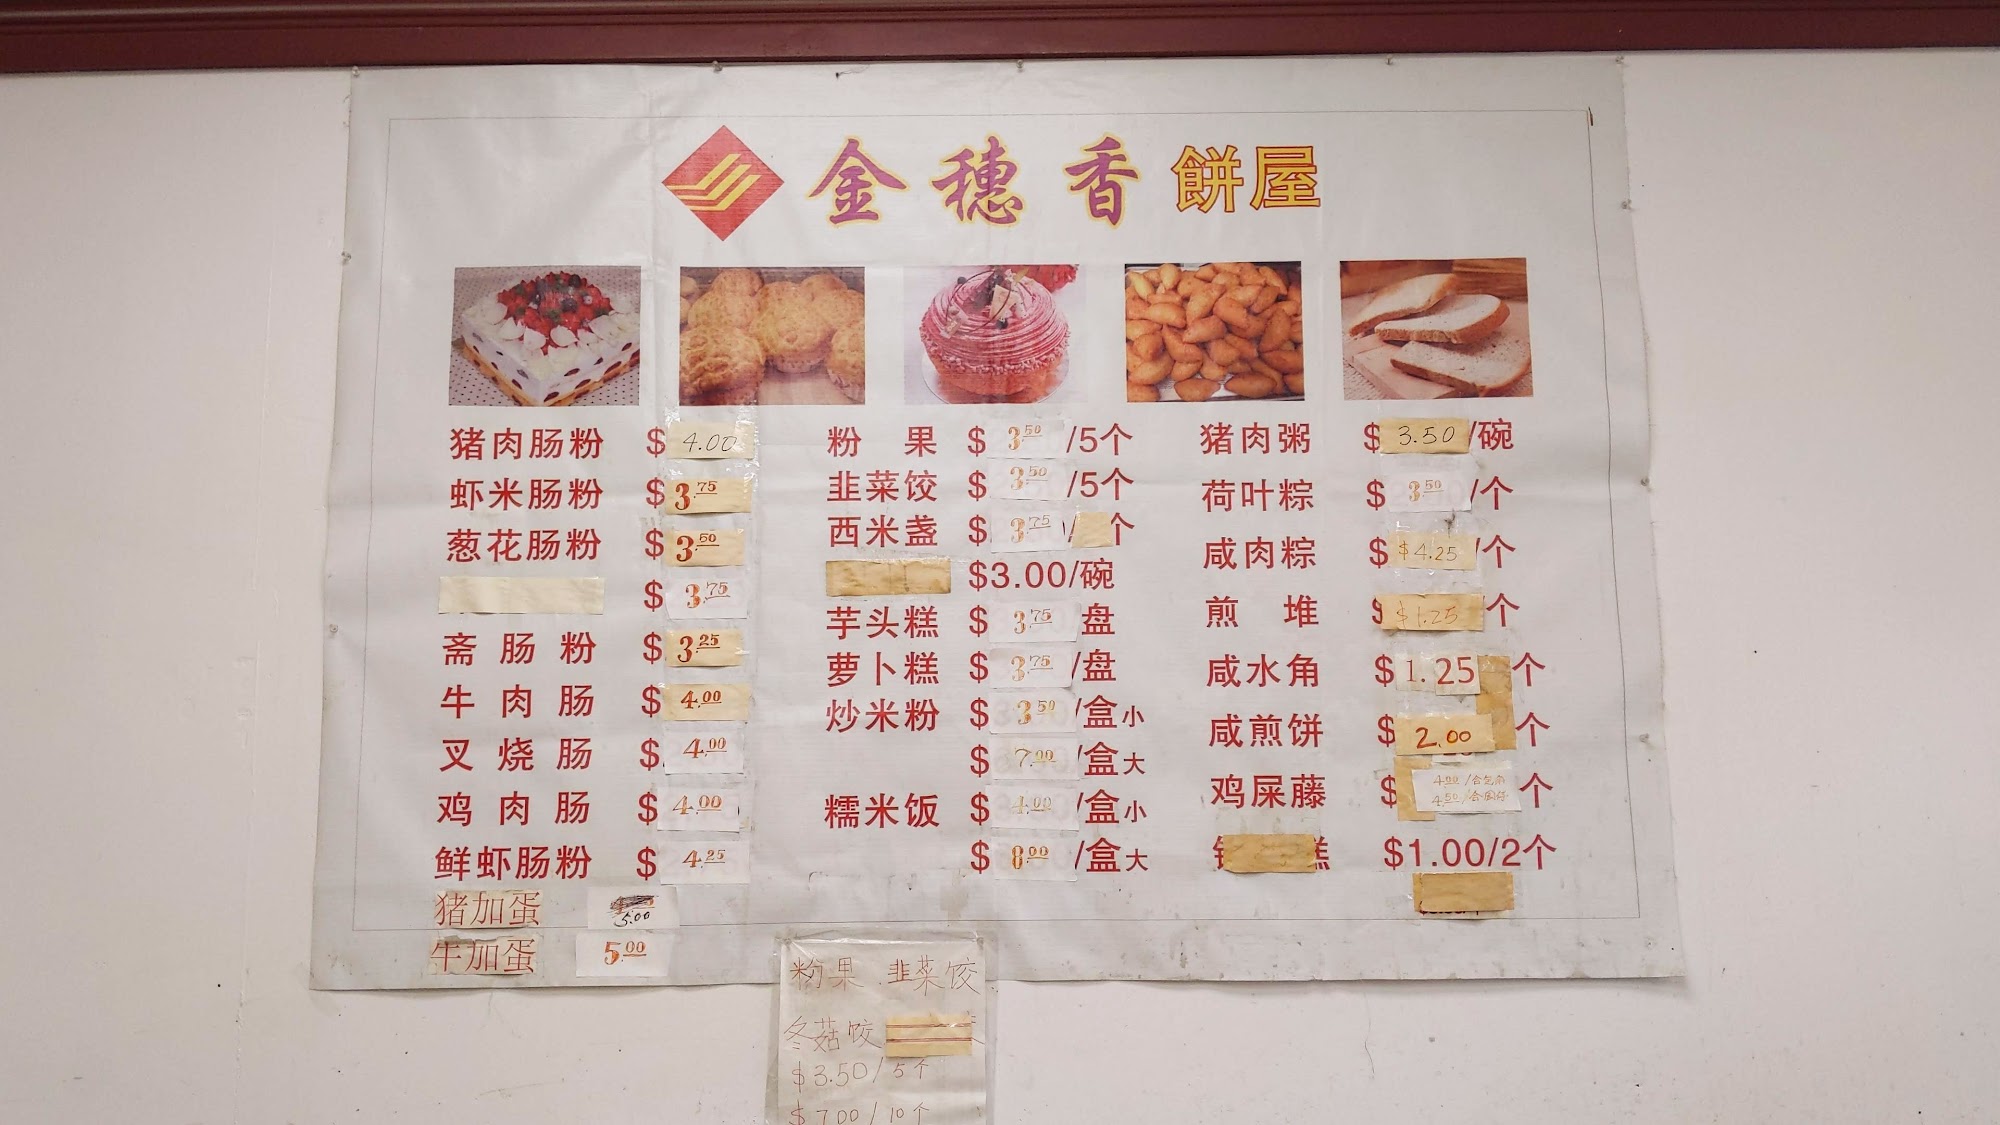 金穗香餅屋
猪肉肠粉 $4.00
虾米肠粉 $3.75
葱花肠粉 $3.50
$3.75
斋肠粉 $3.25
牛肉肠 $4.00
叉烧肠 $4.00
鸡肉肠 $4.00
鲜虾肠粉 $4.25
猪加蛋 5.00
牛加蛋 5.00
粉果 $3.50/5个
韭菜饺 $3.50/5个
西米盏 $3.75/个
$3.00/碗
芋头糕 $3.75盘
萝卜糕 $3.75/盘
炒米粉 $3.50/盒小
$7.00/盒大
糯米饭 $4.00/盒小
$8.00/盒大
猪肉粥 $3.50/碗
荷叶粽 $3.50/个
咸肉粽 $4.25/个
煎堆 $1.25/个
咸水角 $1.25个
咸煎饼 $2.00个
鸡屎藤 $个
4.00/合
4.50/合
糕 $1.00/2个
粉果 韭菜饺
冬菇饺
$3.50/5个
$7.00/10个